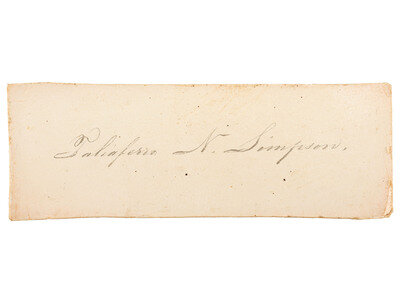 Taliaferro N. Simpson.